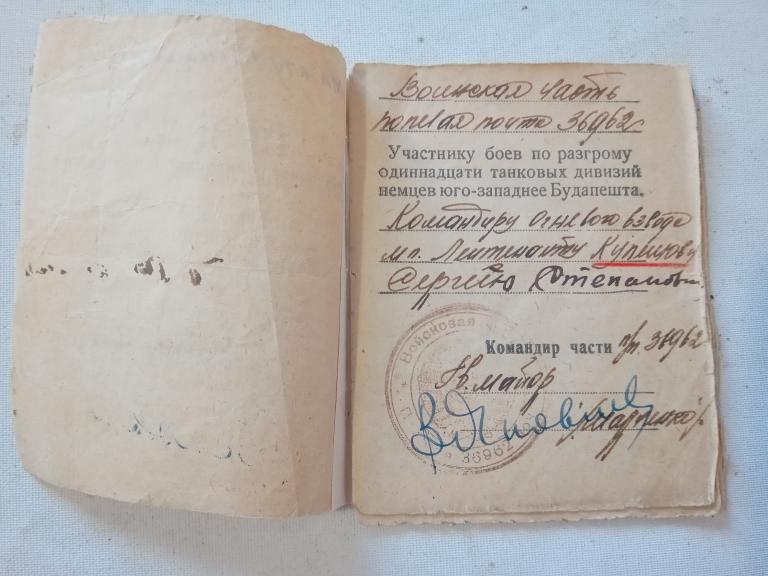 Воинская часть
полевая почта 36962
Участнику боев по разгрому
одиннадцати танковых дивизий
немцев юго-западнее Будапешта.
Командиру огневого взвода
мл. Лейтенанту
Сергею Степанович
Командир части п/п. 36962
Гв. майор
Войсковая
36962